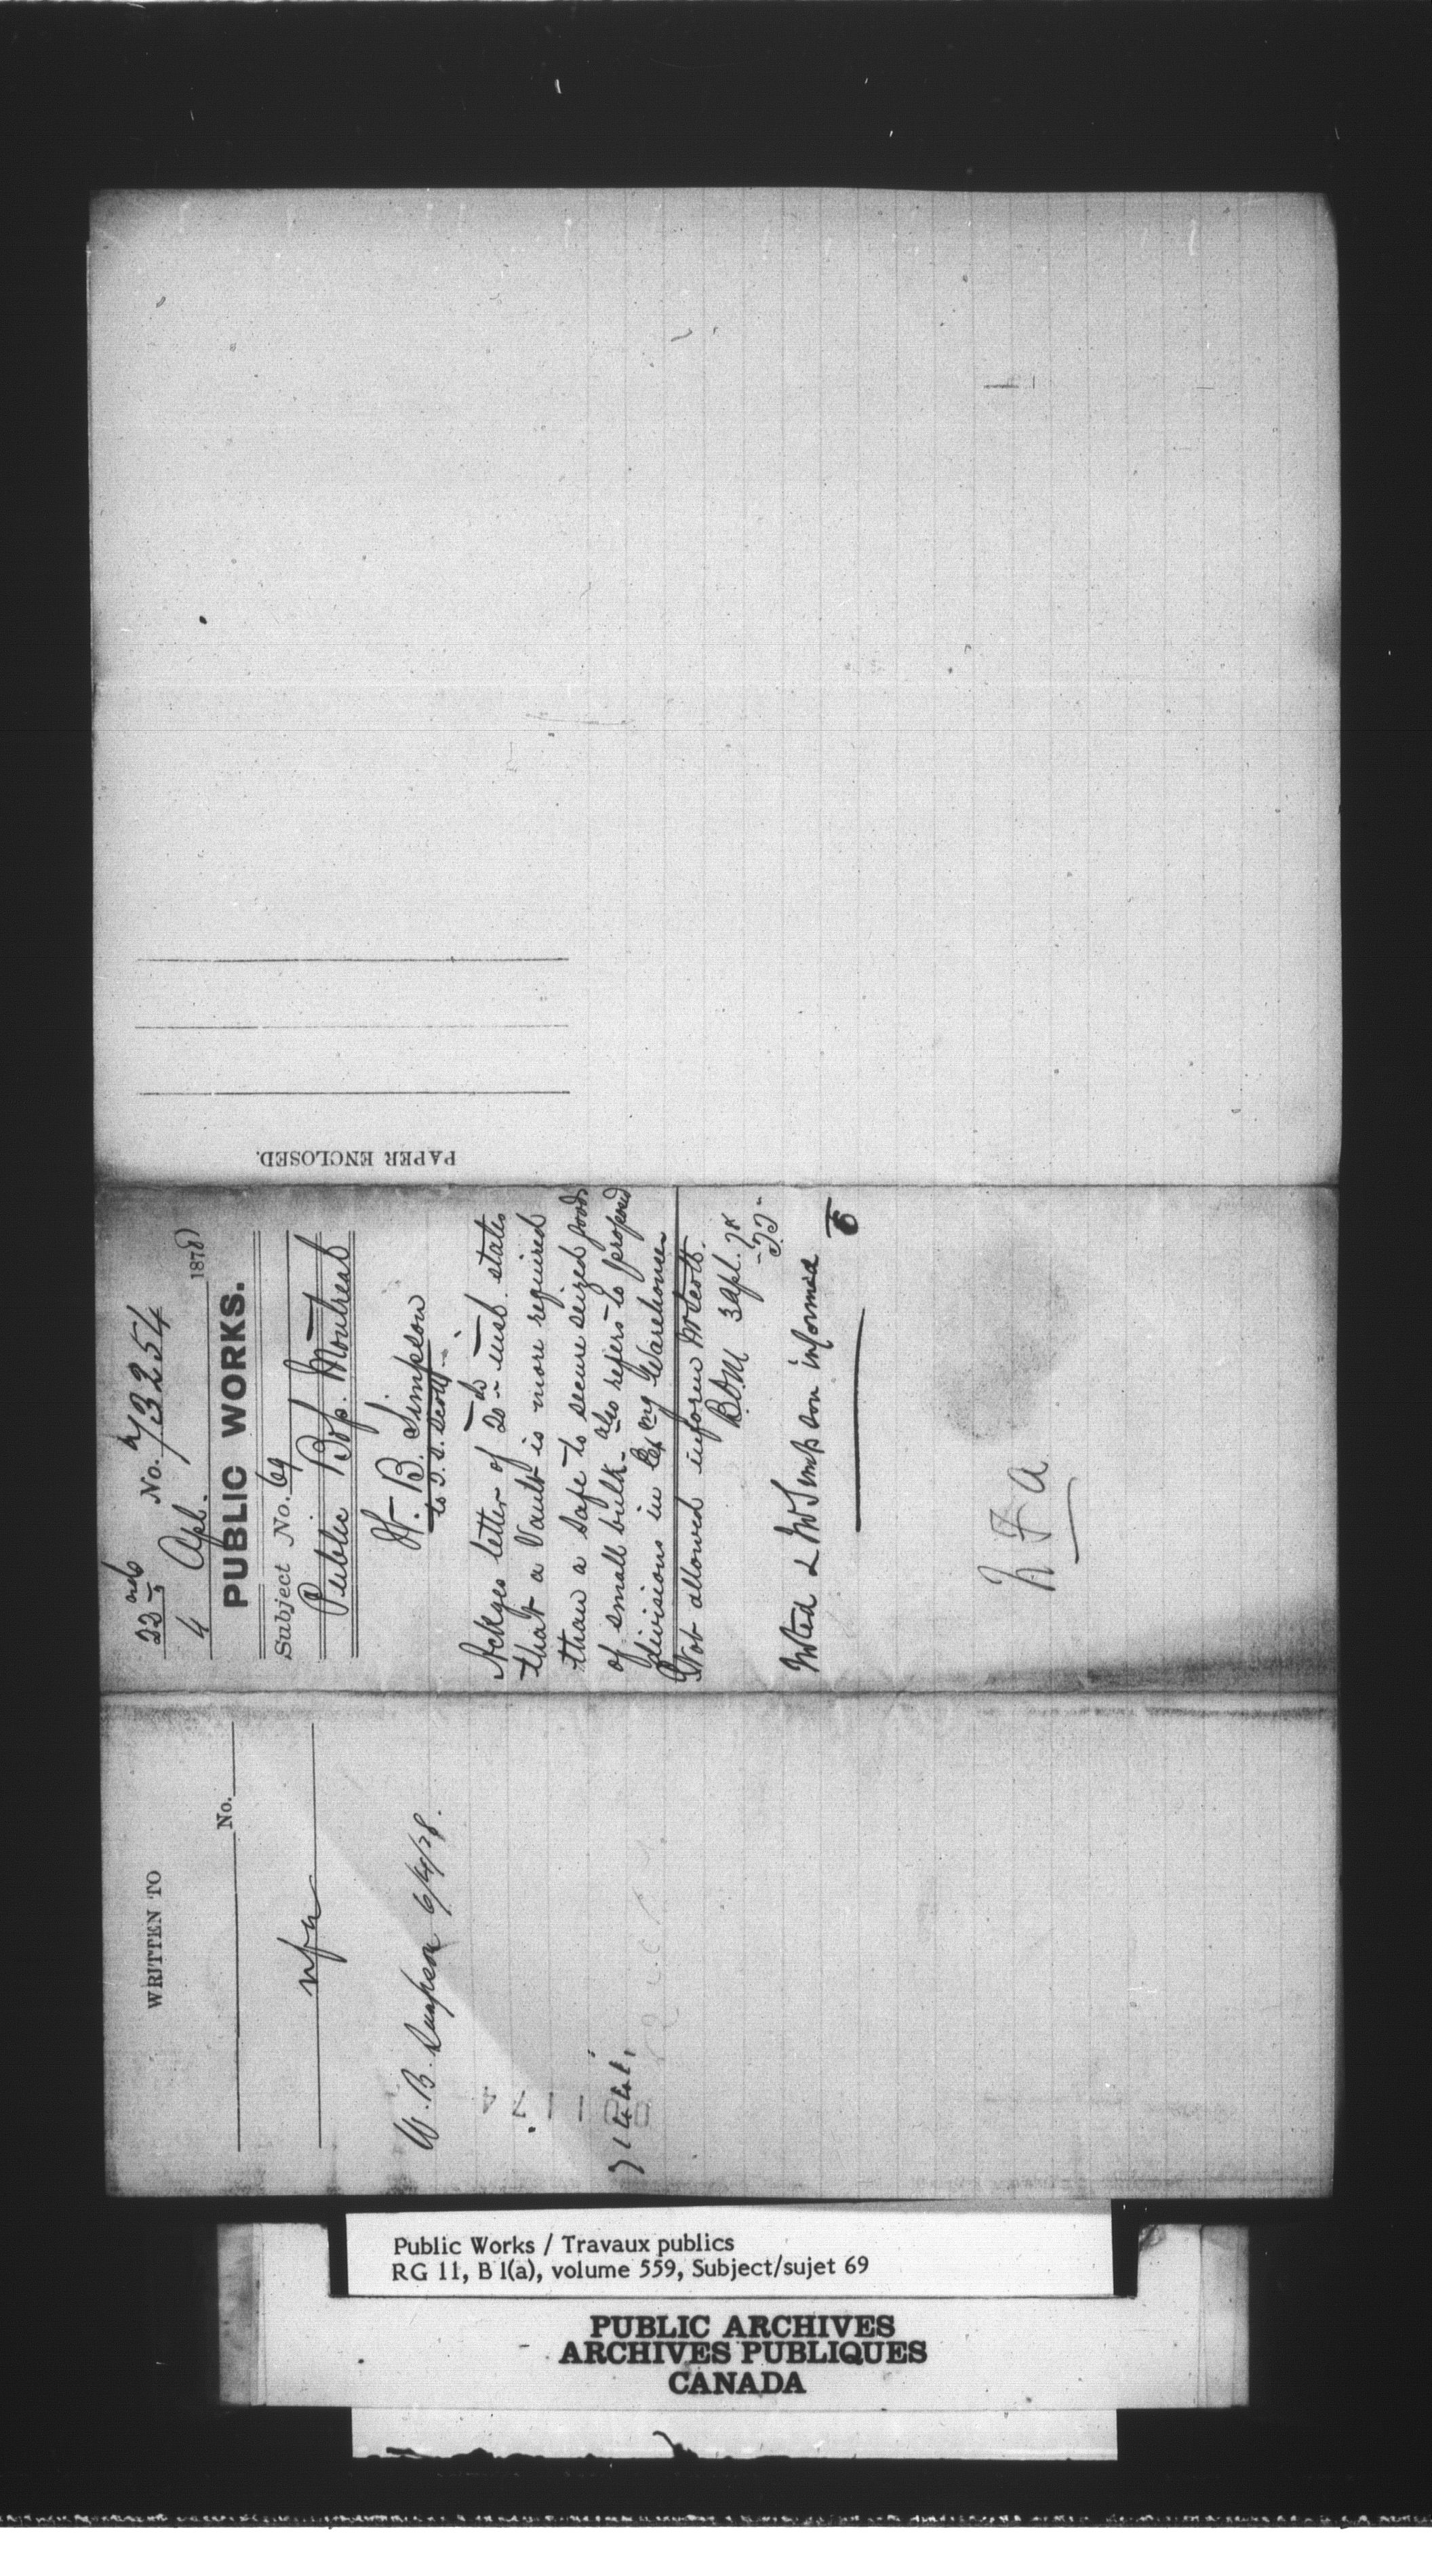 PAPER ENCLOSED.
22nd No. 73254
4 Apl. 1878
PUBLIC WORKS.
Subject No. 69
Public Bdgs. Montreal
W. B. Simpson
to T. S. Scott
Ackges letter of 20th inst. states
that a Vault is more required
than a safe to secure seized goods
of small bulk. also refers to proposed
divisions in Exmg Warehouse
Not allowed inform Mr Scott.
3 Apl. 78
Noted & Mr Simpson informed
WRITTEN TO
No.
W. B. Simpson 6/4/78.
001174
Public Works / Travaux publics
RG 11, B 1(a), volume 559, Subject/sujet 69
PUBLIC ARCHIVES
ARCHIVES PUBLIQUES
CANADA